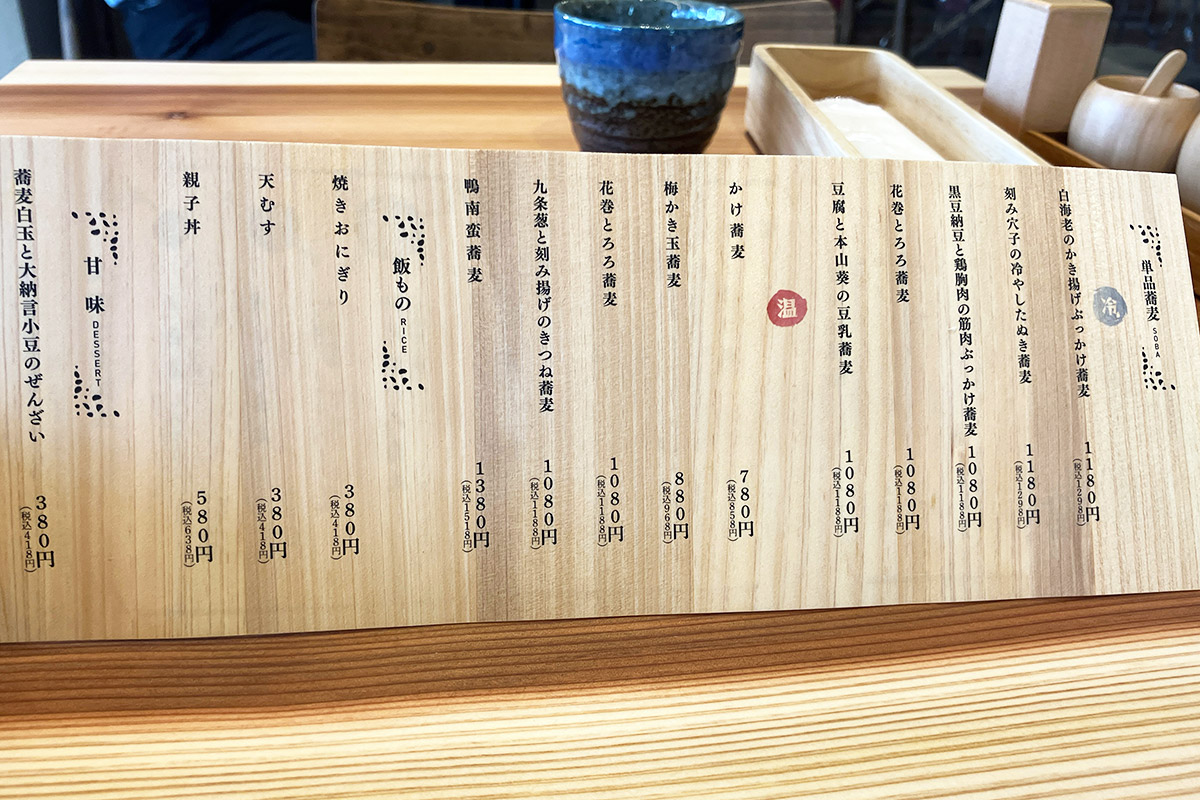 単品蕎麦 SOBA
冷
白海老のかき揚げぶっかけ蕎麦
1180円
(税込1298円)
刻み穴子の冷やしたぬき蕎麦
1180円
(税込1298円)
黒豆納豆と鶏胸肉の筋肉ぶっかけ蕎麦
1080円
(税込1188円)
花巻とろろ蕎麦
1080円
(税込1188円)
豆腐と本山葵の豆乳蕎麦
1080円
(税込1188円)
温
かけ蕎麦
780円
(税込858円)
梅かき玉蕎麦
880円
(税込968円)
花巻とろろ蕎麦
1080円
(税込1188円)
九条葱と刻み揚げのきつね蕎麦
1080円
(税込1188円)
鴨南蛮蕎麦
1380円
(税込1518円)
飯もの RICE
焼きおにぎり
380円
(税込418円)
天むす
380円
(税込418円)
親子丼
580円
(税込638円)
甘味 DESSERT
蕎麦白玉と大納言小豆のぜんざい
380円
(税込418円)